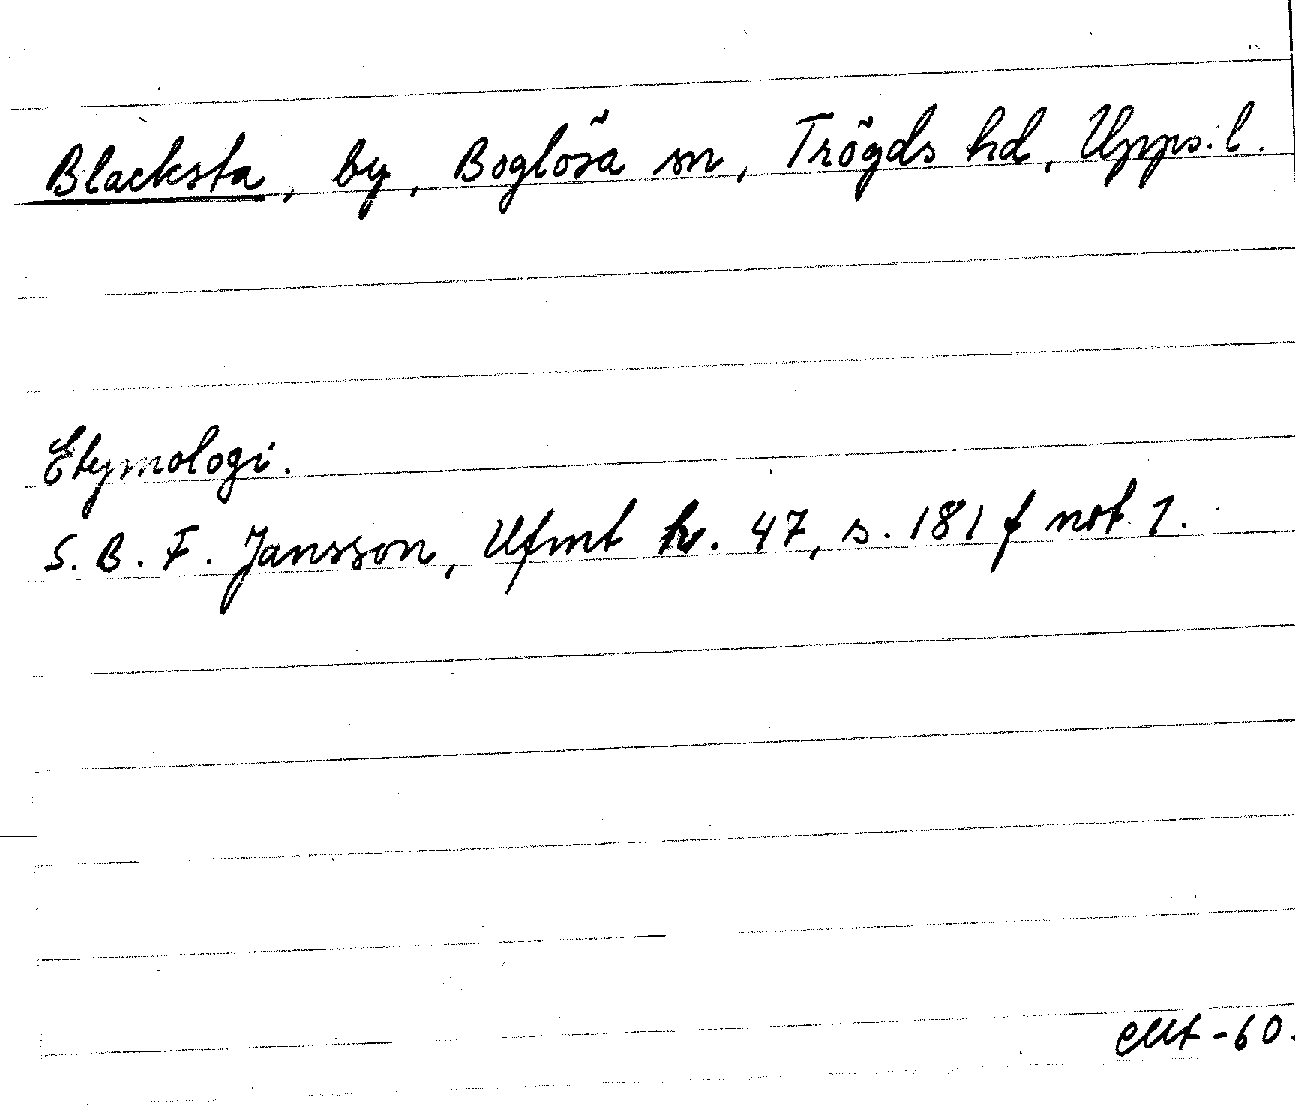 Blacksta, by, Boglösa sn, Trögds hd, Upps. l.
Etymologi.
S. B. F. Jansson, Ufmt h. 47, s. 181 f not 1.
-60.